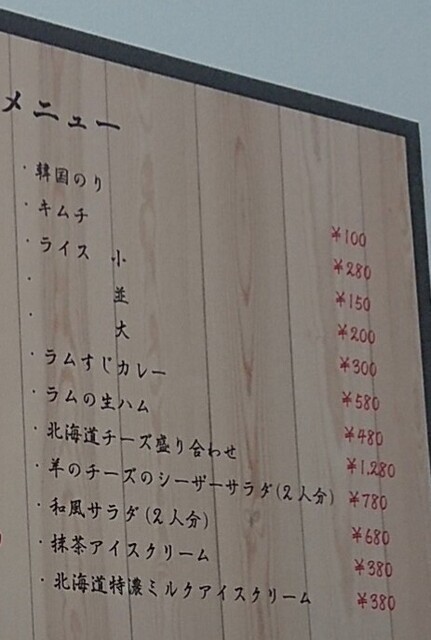 メニュー
・韓国のり ¥100
・キムチ ¥280
・ライス 小 ¥150
・ 並 ¥200
・ 大 ¥300
・ラムすじカレー ¥580
・ラムの生ハム ¥480
・北海道チーズ盛り合わせ ¥1,280
・羊のチーズのシーザーサラダ(2人分) ¥780
・和風サラダ(2人分) ¥680
・抹茶アイスクリーム ¥380
・北海道特濃ミルクアイスクリーム ¥380